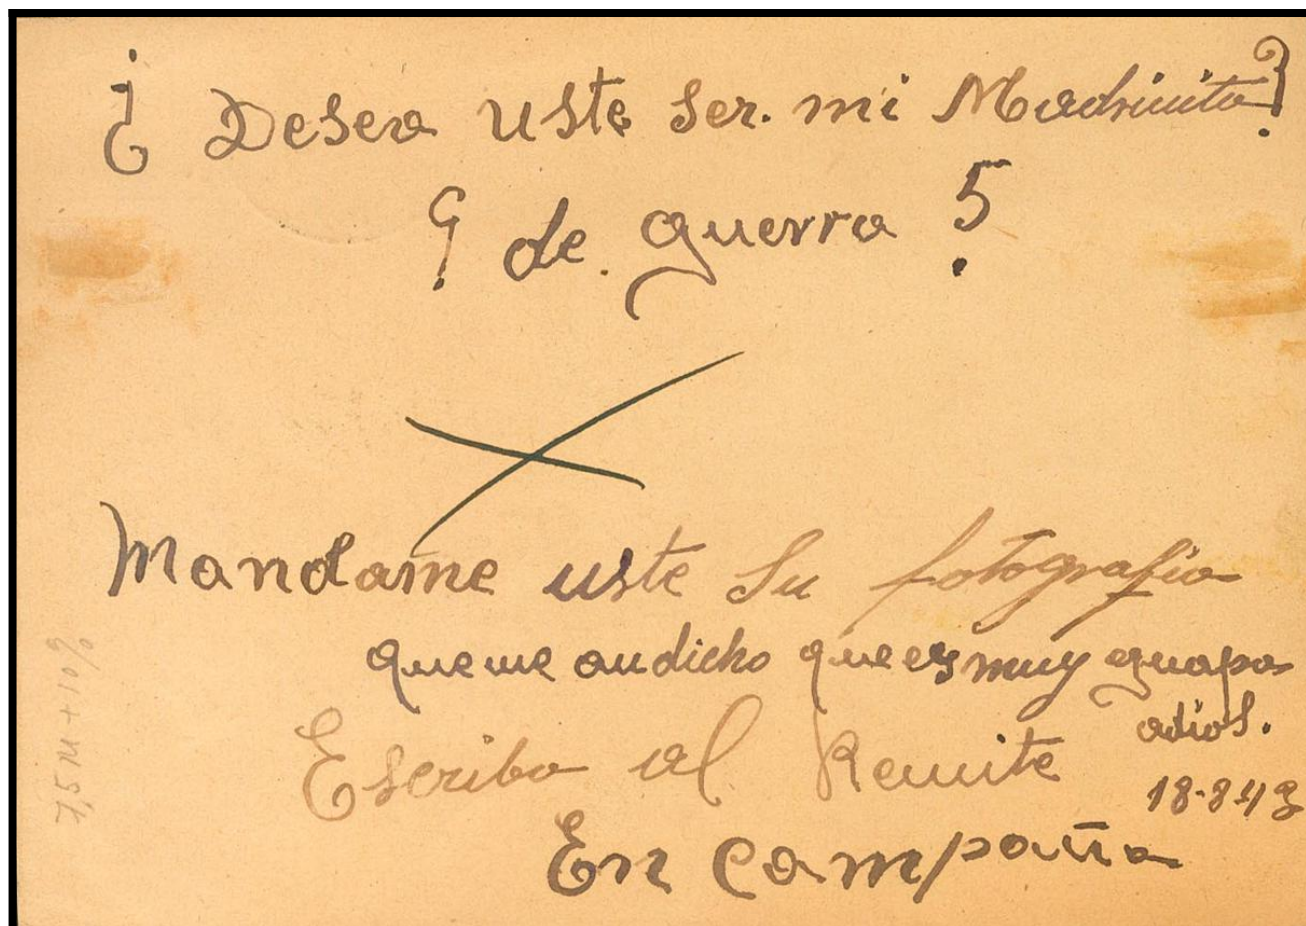 ¿Desea uste ser. mi Madrinita?
¿ de. guerra ?
Mandame uste su fotografia
que me an dicho que es muy guapa
adios.
Escriba al Remite
18-8-43
En campaña
7,5 M + 10%